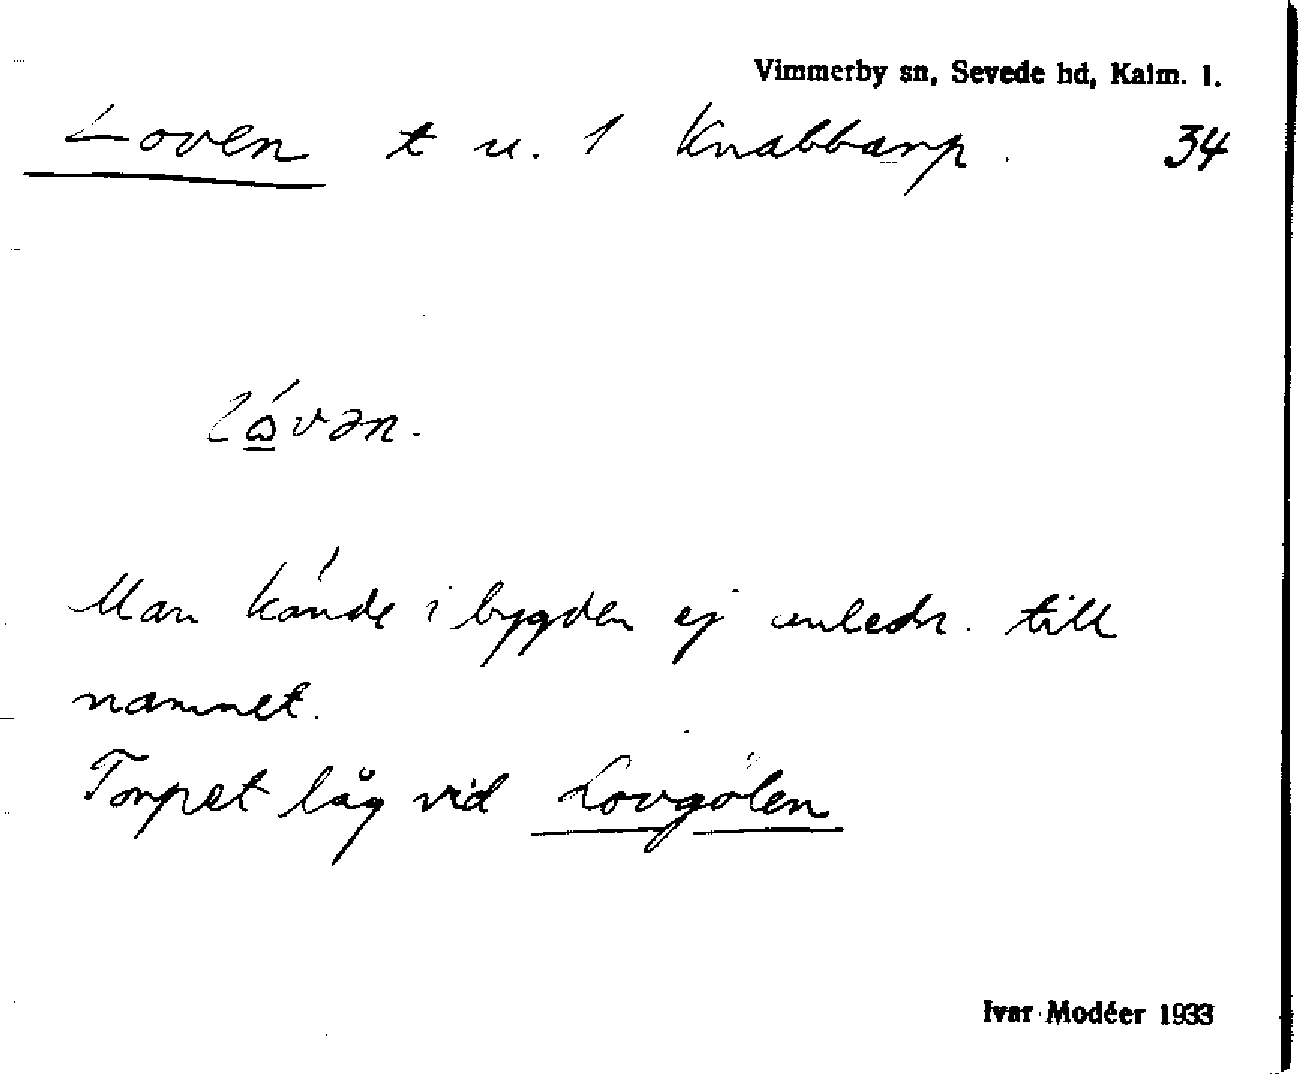 Vimmerby sn, Sevede hd, Kalm. l.
Loven t u. 1 Knabbarp. 34
lώ̲vən.
Man kände i bygden ej anledn. till
namnet.
Torpet låg vid Lovgölen
Ivar Modéer 1933